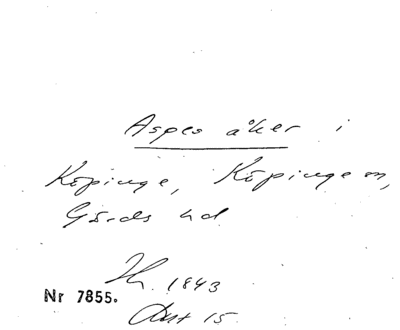 Aspes åker i
Köpinge, Köpinge sn,
Gärds hd
1843
Nr 7855.
15